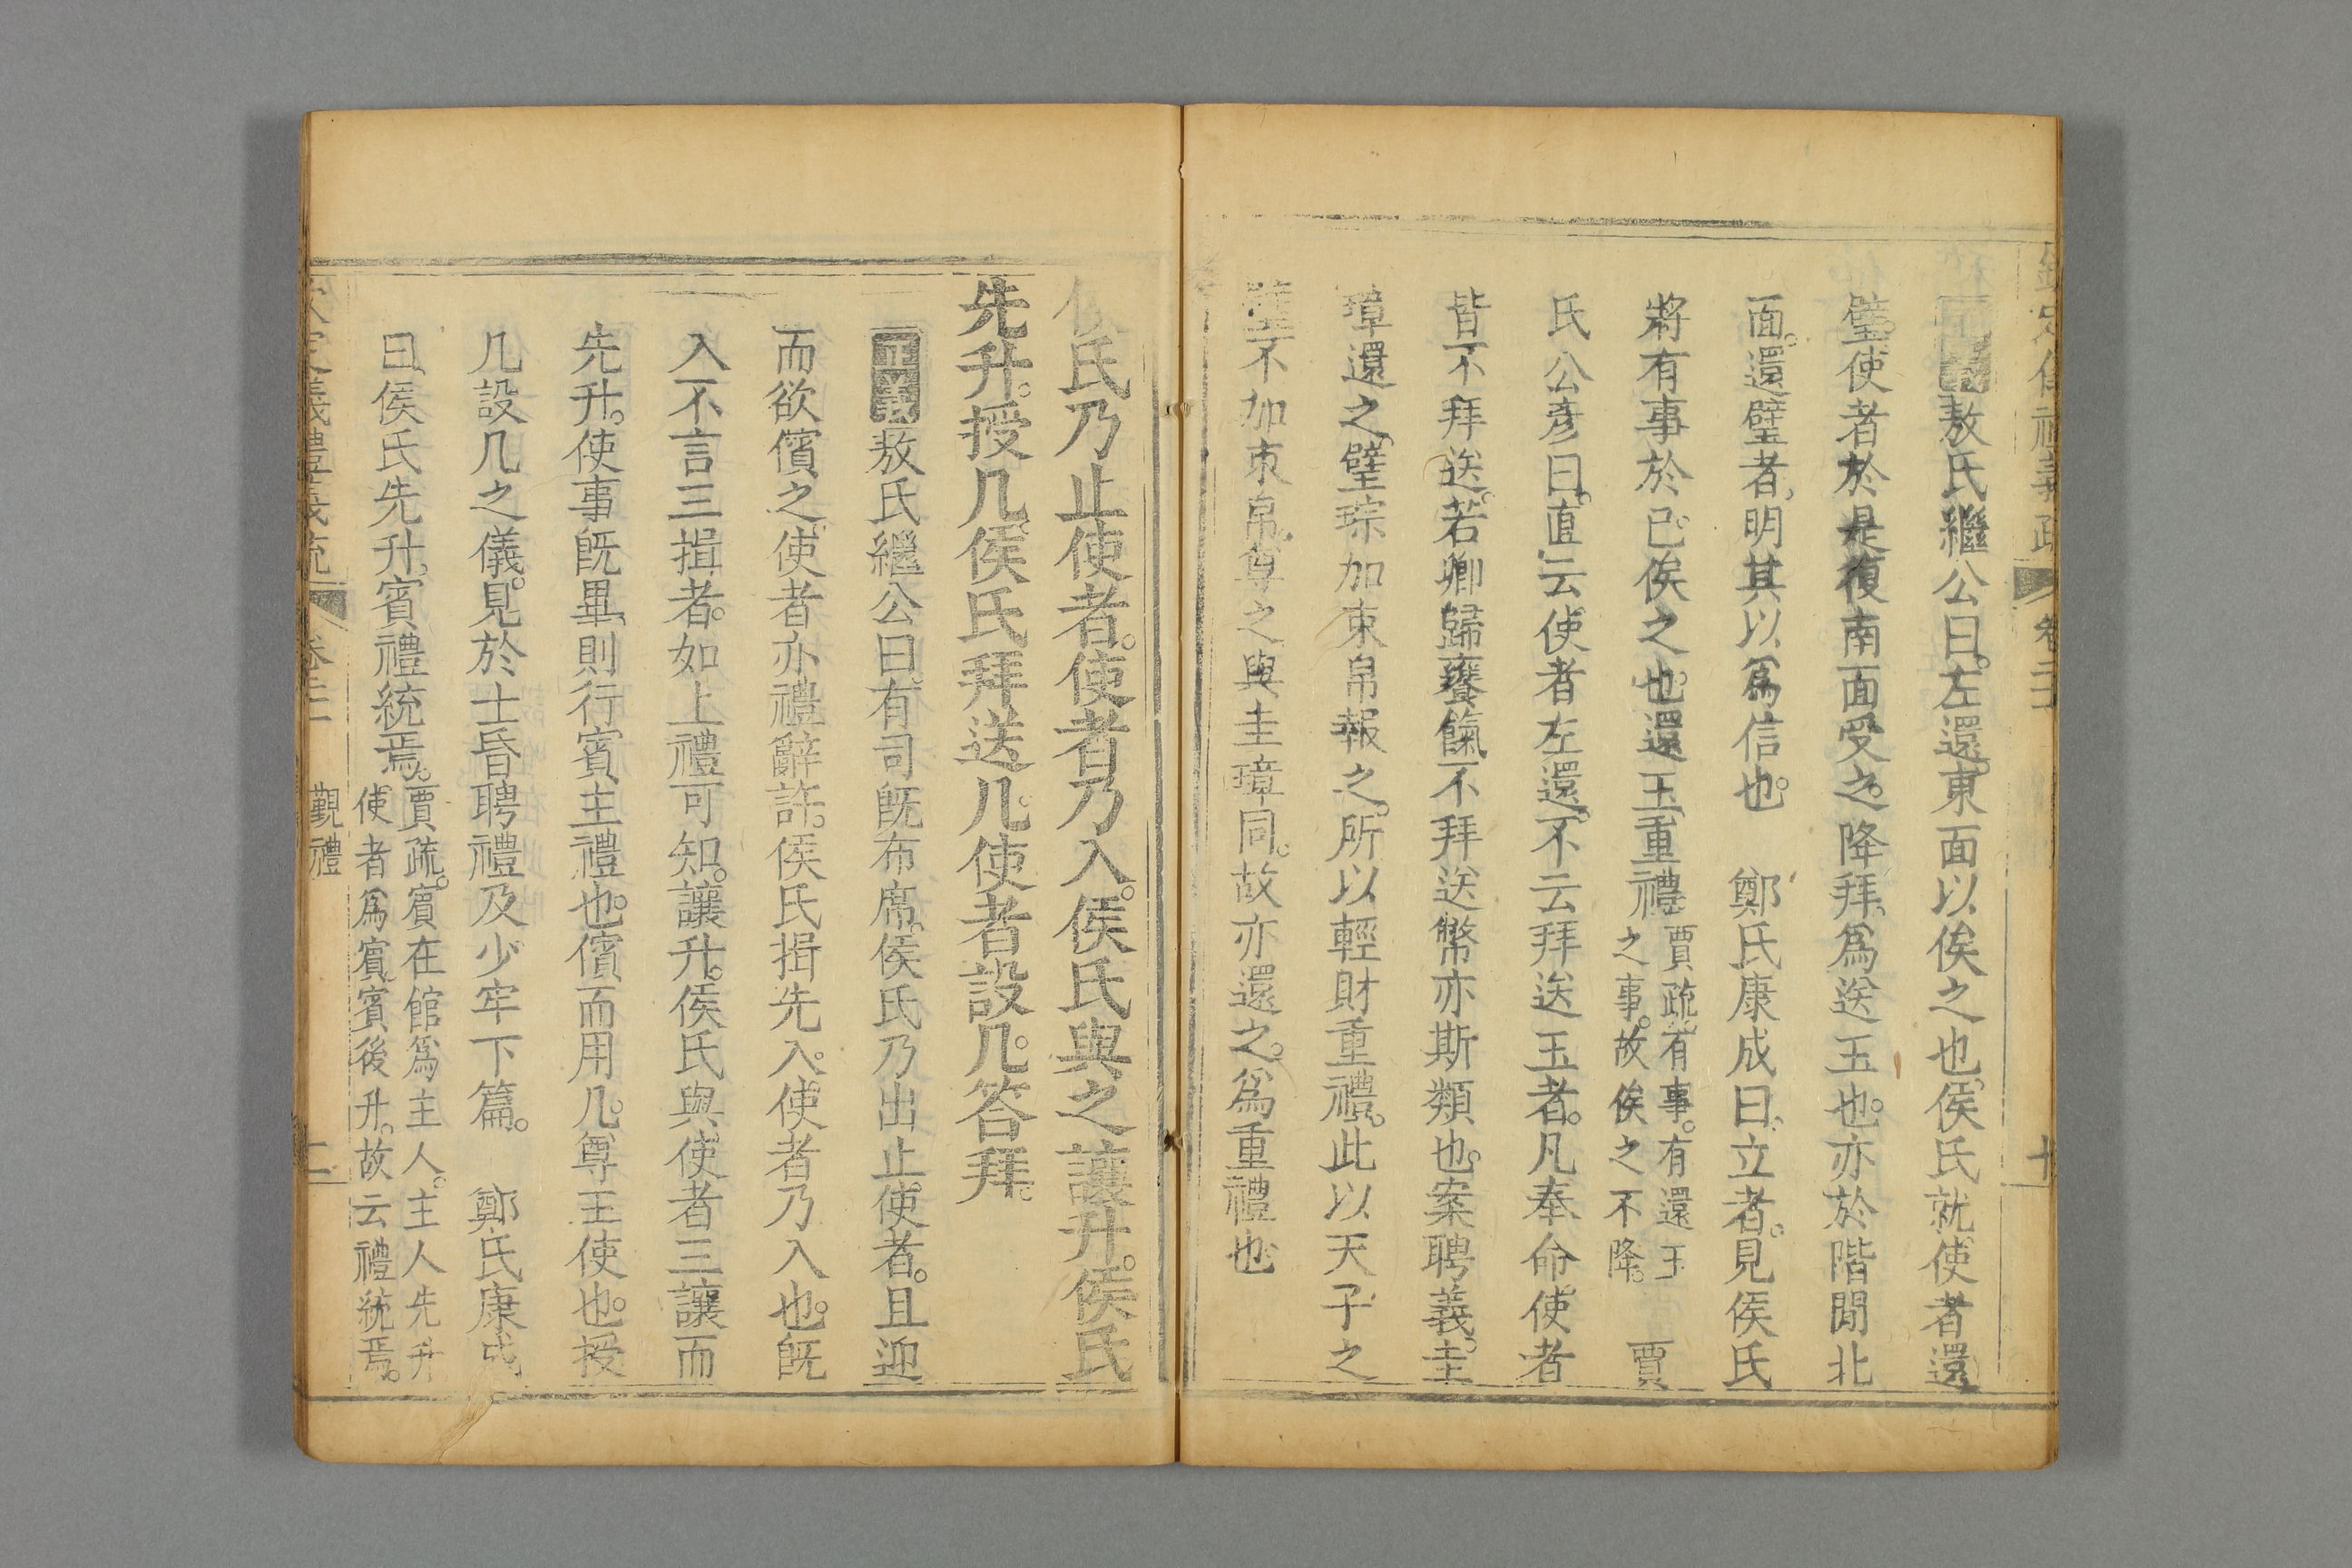 欽定儀禮義疏 卷二十 十
正義敖氏繼公曰。左還。東面以俟之也。侯氏就使者還
璧。使者於是復南面受之。降拜。爲送玉也。亦於階閒北
面。還璧者。明其以爲信也。 鄭氏康成曰。立者。見侯氏
將有事於已。俟之也。還玉重禮
賈疏。有事。有還玉
之事。故俟之不降。
賈
氏公彥曰。直云使者左還。不云拜送玉者。凡奉命使者
皆不拜送。若卿歸饔餼。不拜送幣。亦斯類也。案聘義。圭
璋還之。璧琮加束帛報之。所以輕財重禮。此以天子之
璧不加束帛。尊之與圭璋同。故亦還之。爲重禮也
侯氏乃止使者。使者乃入。侯氏與之讓升。侯氏
先升。授几。侯氏拜送几。使者設几。答拜。
正義敖氏繼公曰。有司旣布席。侯氏乃出止使者。且迎
而欲儐之。使者亦禮辭許。侯氏揖先入。使者乃入也。旣
入不言三揖者。如上禮可知。讓升。侯氏與使者三讓而
先升。使事旣畢。則行賓主禮也。儐而用几。尊王使也。授
几設几之儀。見於士昏聘禮及少牢下篇。 鄭氏康成
曰。侯氏先升。賓禮統焉。
賈疏。賓在館爲主人。主人先升
使者爲賓。賓後升。故云禮統焉。
欽定儀禮義疏 卷二十 覲禮 十一